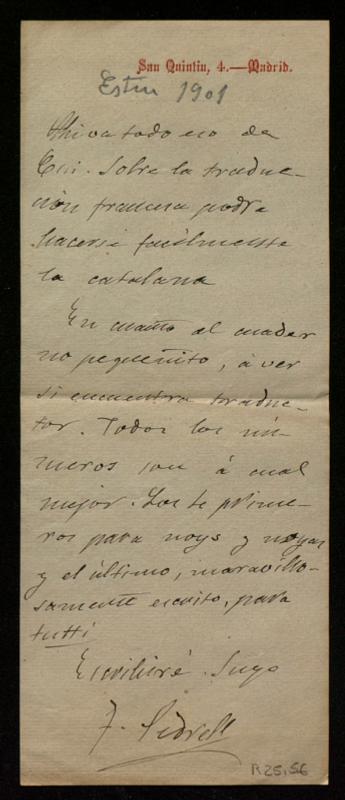 San Quintín, 4.—Madrid.
Estiu 1901
Ahí va todo eso de
Cui. Sobre la traduc-
ción francesa podrá
hacerse facilmente
la catalana
En cuanto al cuader
no pequeñito, á ver
si encuentra traduc-
tor. Todos los nú-
meros son á cual
mejor. Los 6 prime-
ros para noys y noyas
y el último, maravillo-
samente escrito, para
tutti
Escribiré. Suyo
F. Pedrell
R25,56